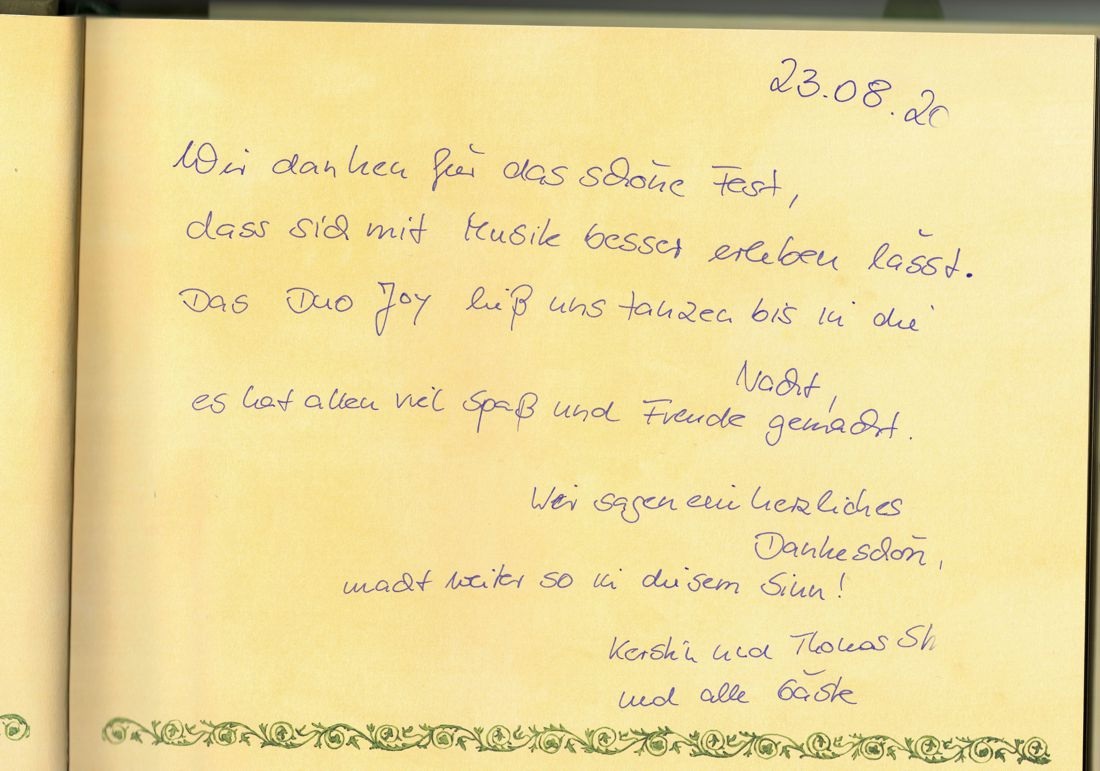 23.08.20
Wir danken für das schöne Fest,
dass sich mit Musik besser erleben lässt.
Das Duo Joy ließ uns tanzen bis in die
Nacht,
es hat allen viel Spaß und Freude gemacht.
Wir sagen ein herzliches
Dankeschön,
macht weiter so in diesem Sinn!
Kerstin und Thomas
und alle Gäste